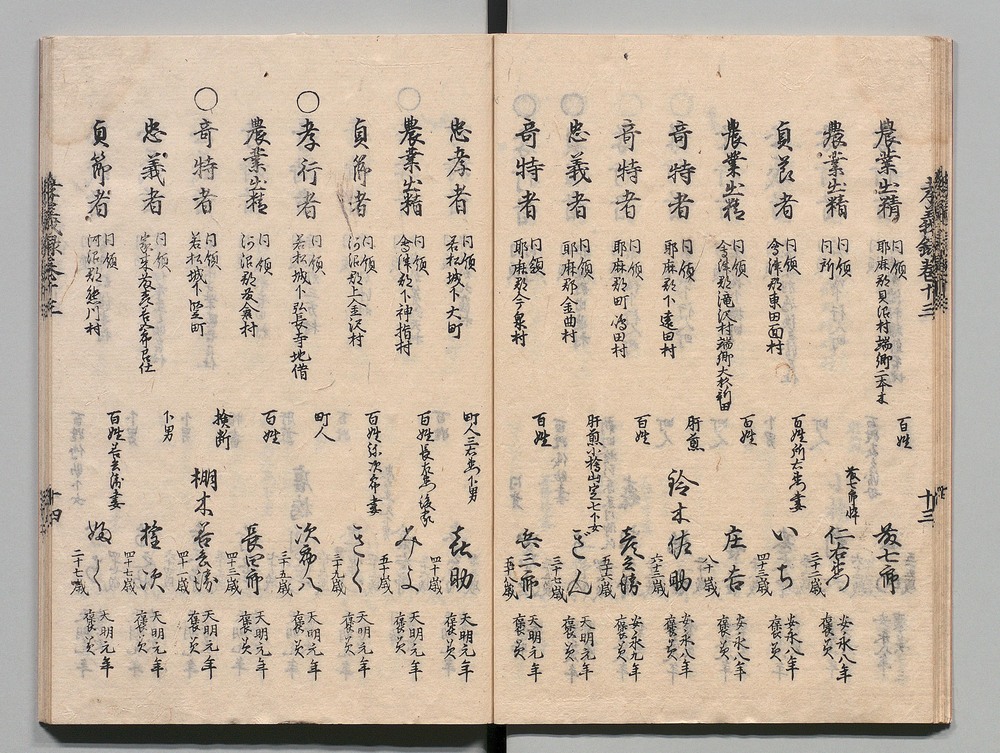 孝義録巻十三
農業出精
同領
耶麻郡貝沼村端郷二本木
百姓
茂七郎
農業出精
同領
同所
茂七郎悴
仁右衛門
三十二歳
安永八年
褒美
貞節者
同領
会津郡東田面村
百姓所右衛門妻
いち
四十三歳
安永八年
褒美
農業出精
同領
会津郡滝沢村端郷大杉新田
百姓
庄吉
八十歳
安永八年
褒美
奇特者
同領
耶麻郡下遠田村
肝煎
鈴木佐助
六十二歳
安永八年
褒美
奇特者
同領
耶麻郡町嶋田村
百姓
彦勝
安永九年
褒美
忠義者
同領
耶麻郡金曲村
肝煎小檜山定七下女
ぎん
三十七歳
天明元年
褒美
奇特者
同領
耶麻郡今泉村
百姓
兵二郎
天明元年
褒美
十三
忠孝者
同領
若松城下大町
町人三右衛門下男
喜助
四十歳
天明元年
褒美
農業出精
同領
会津郡下神指村
百姓長左衛門後家
みよ
五十歳
天明元年
褒美
貞節者
同領
河沼郡上金沢村
百姓弥次郎妻
きく
三十九歳
天明元年
褒美
○孝行者
同領
若松城下弘長寺地借
町人
次郎八
三十五歳
天明元年
褒美
農業出精
同領
河沼郡友倉村
百姓
長四郎
四十三歳
天明元年
褒美
○奇特者
同領
若松城下竪町
検断
棚木善勝
四十一歳
天明元年
褒美
忠義者
同領
下男
権次
四十七歳
天明元年
褒美
貞節者
同領
河沼郡熊川村
百姓吉勝妻
ふく
二十七歳
天明元年
褒美
孝義録巻十三
十四